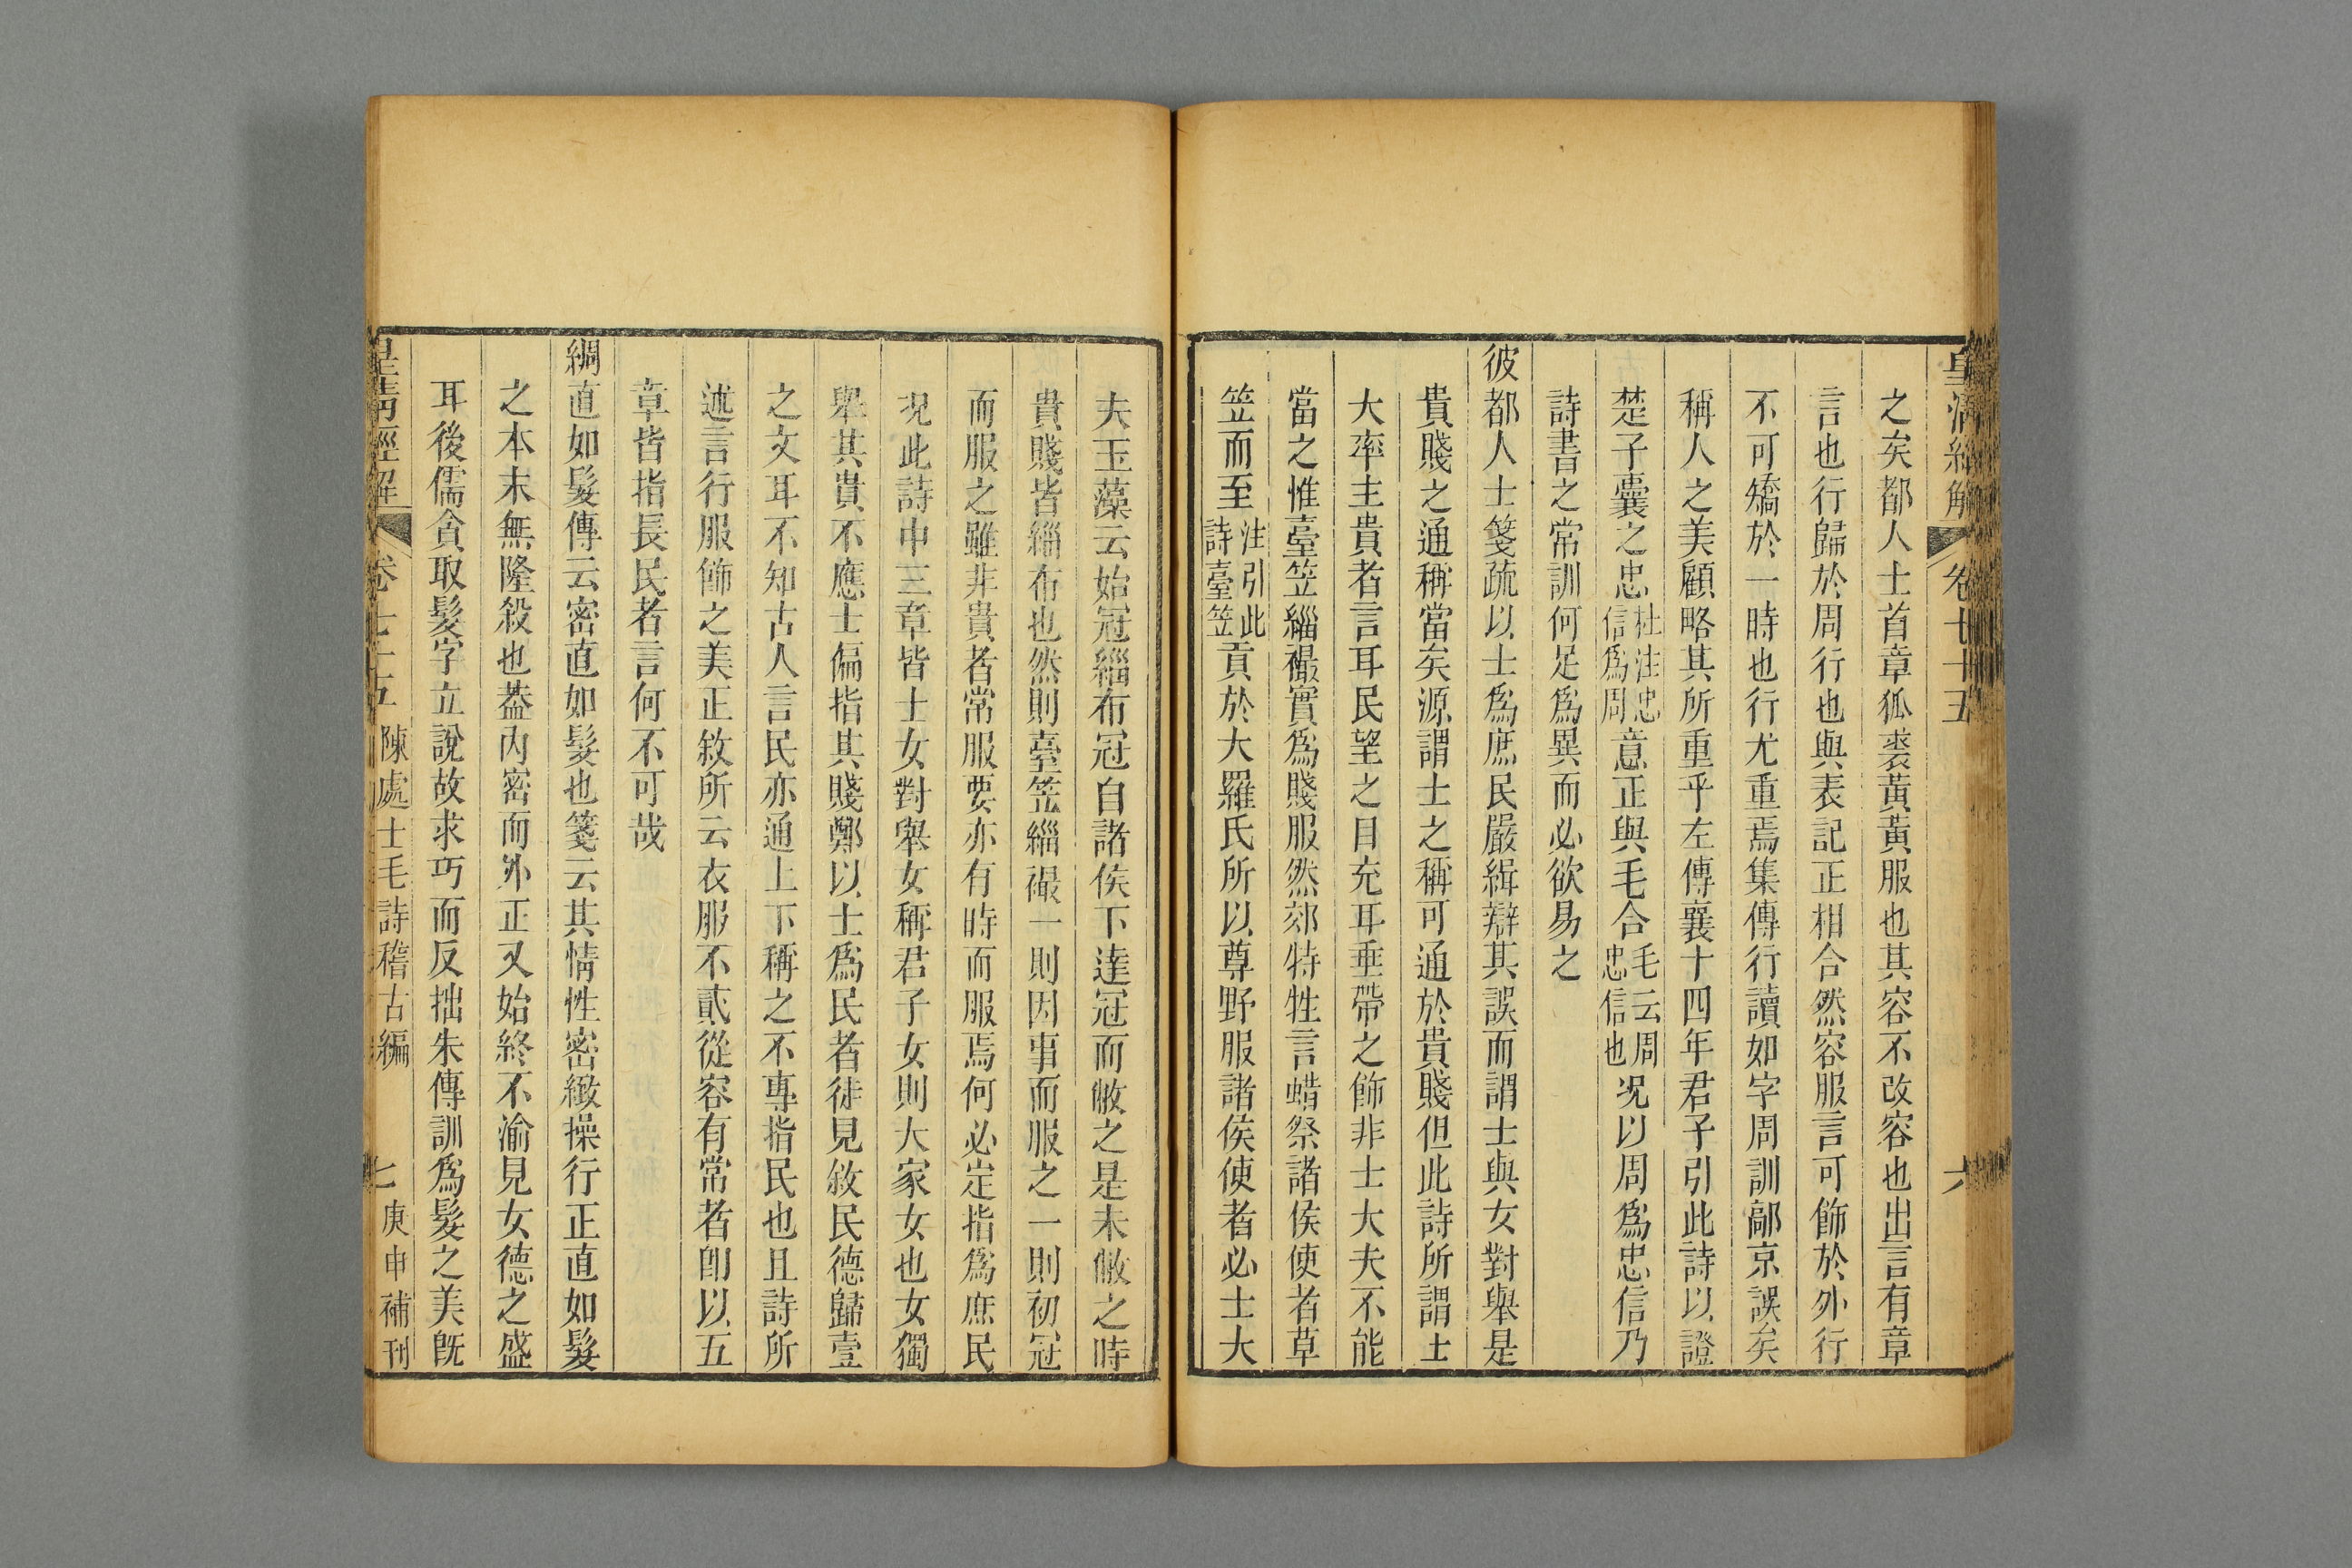 皇清經解 卷七十五 六
之矣都人士首章狐裘黃黃服也其容不改容也出言有章
言也行歸於周行也與表記正相合然容服言可飾於外行
不可矯於一時也行尤重焉集傳行讀如字周訓鄗京誤矣
稱人之美顧略其所重乎左傳襄十四年君子引此詩以證
楚子囊之忠杜注忠信爲周意正與毛合毛云周忠信也況以周爲忠信乃
詩書之常訓何足爲異而必欲易之
彼都人士箋疏以士爲庶民嚴緝辯其誤而謂士與女對舉是
貴賤之通稱當矣源謂士之稱可通於貴賤但此詩所謂士
大率主貴者言耳民望之目充耳垂帶之飾非士大夫不能
當之惟臺笠緇撮實爲賤服然郊特牲言蜡祭諸侯使者草
笠而至注引此詩臺笠貢於大羅氏所以尊野服諸侯使者必士大
夫玉藻云始冠緇布冠自諸侯下達冠而敝之是未敝之時
貴賤皆緇布也然則臺笠緇撮一則因事而服之一則初冠
而服之雖非貴者常服要亦有時而服焉何必定指爲庶民
況此詩中三章皆士女對舉女稱君子女則大家女也女獨
舉其貴不應士偏指其賤鄭以士爲民者徒見敘民德歸壹
之文耳不知古人言民亦通上下稱之不專指民也且詩所
述言行服飾之美正敘所云衣服不貳從容有常者卽以五
章皆指長民者言何不可哉
綢直如髮傳云密直如髮也箋云其情性密緻操行正直如髮
之本末無隆殺也葢內密而外正又始終不渝見女德之盛
耳後儒貪取髮字立說故求巧而反拙朱傳訓爲髮之美旣
皇清經解 卷七十五 陳處士毛詩稽古編 七 庚申補刊